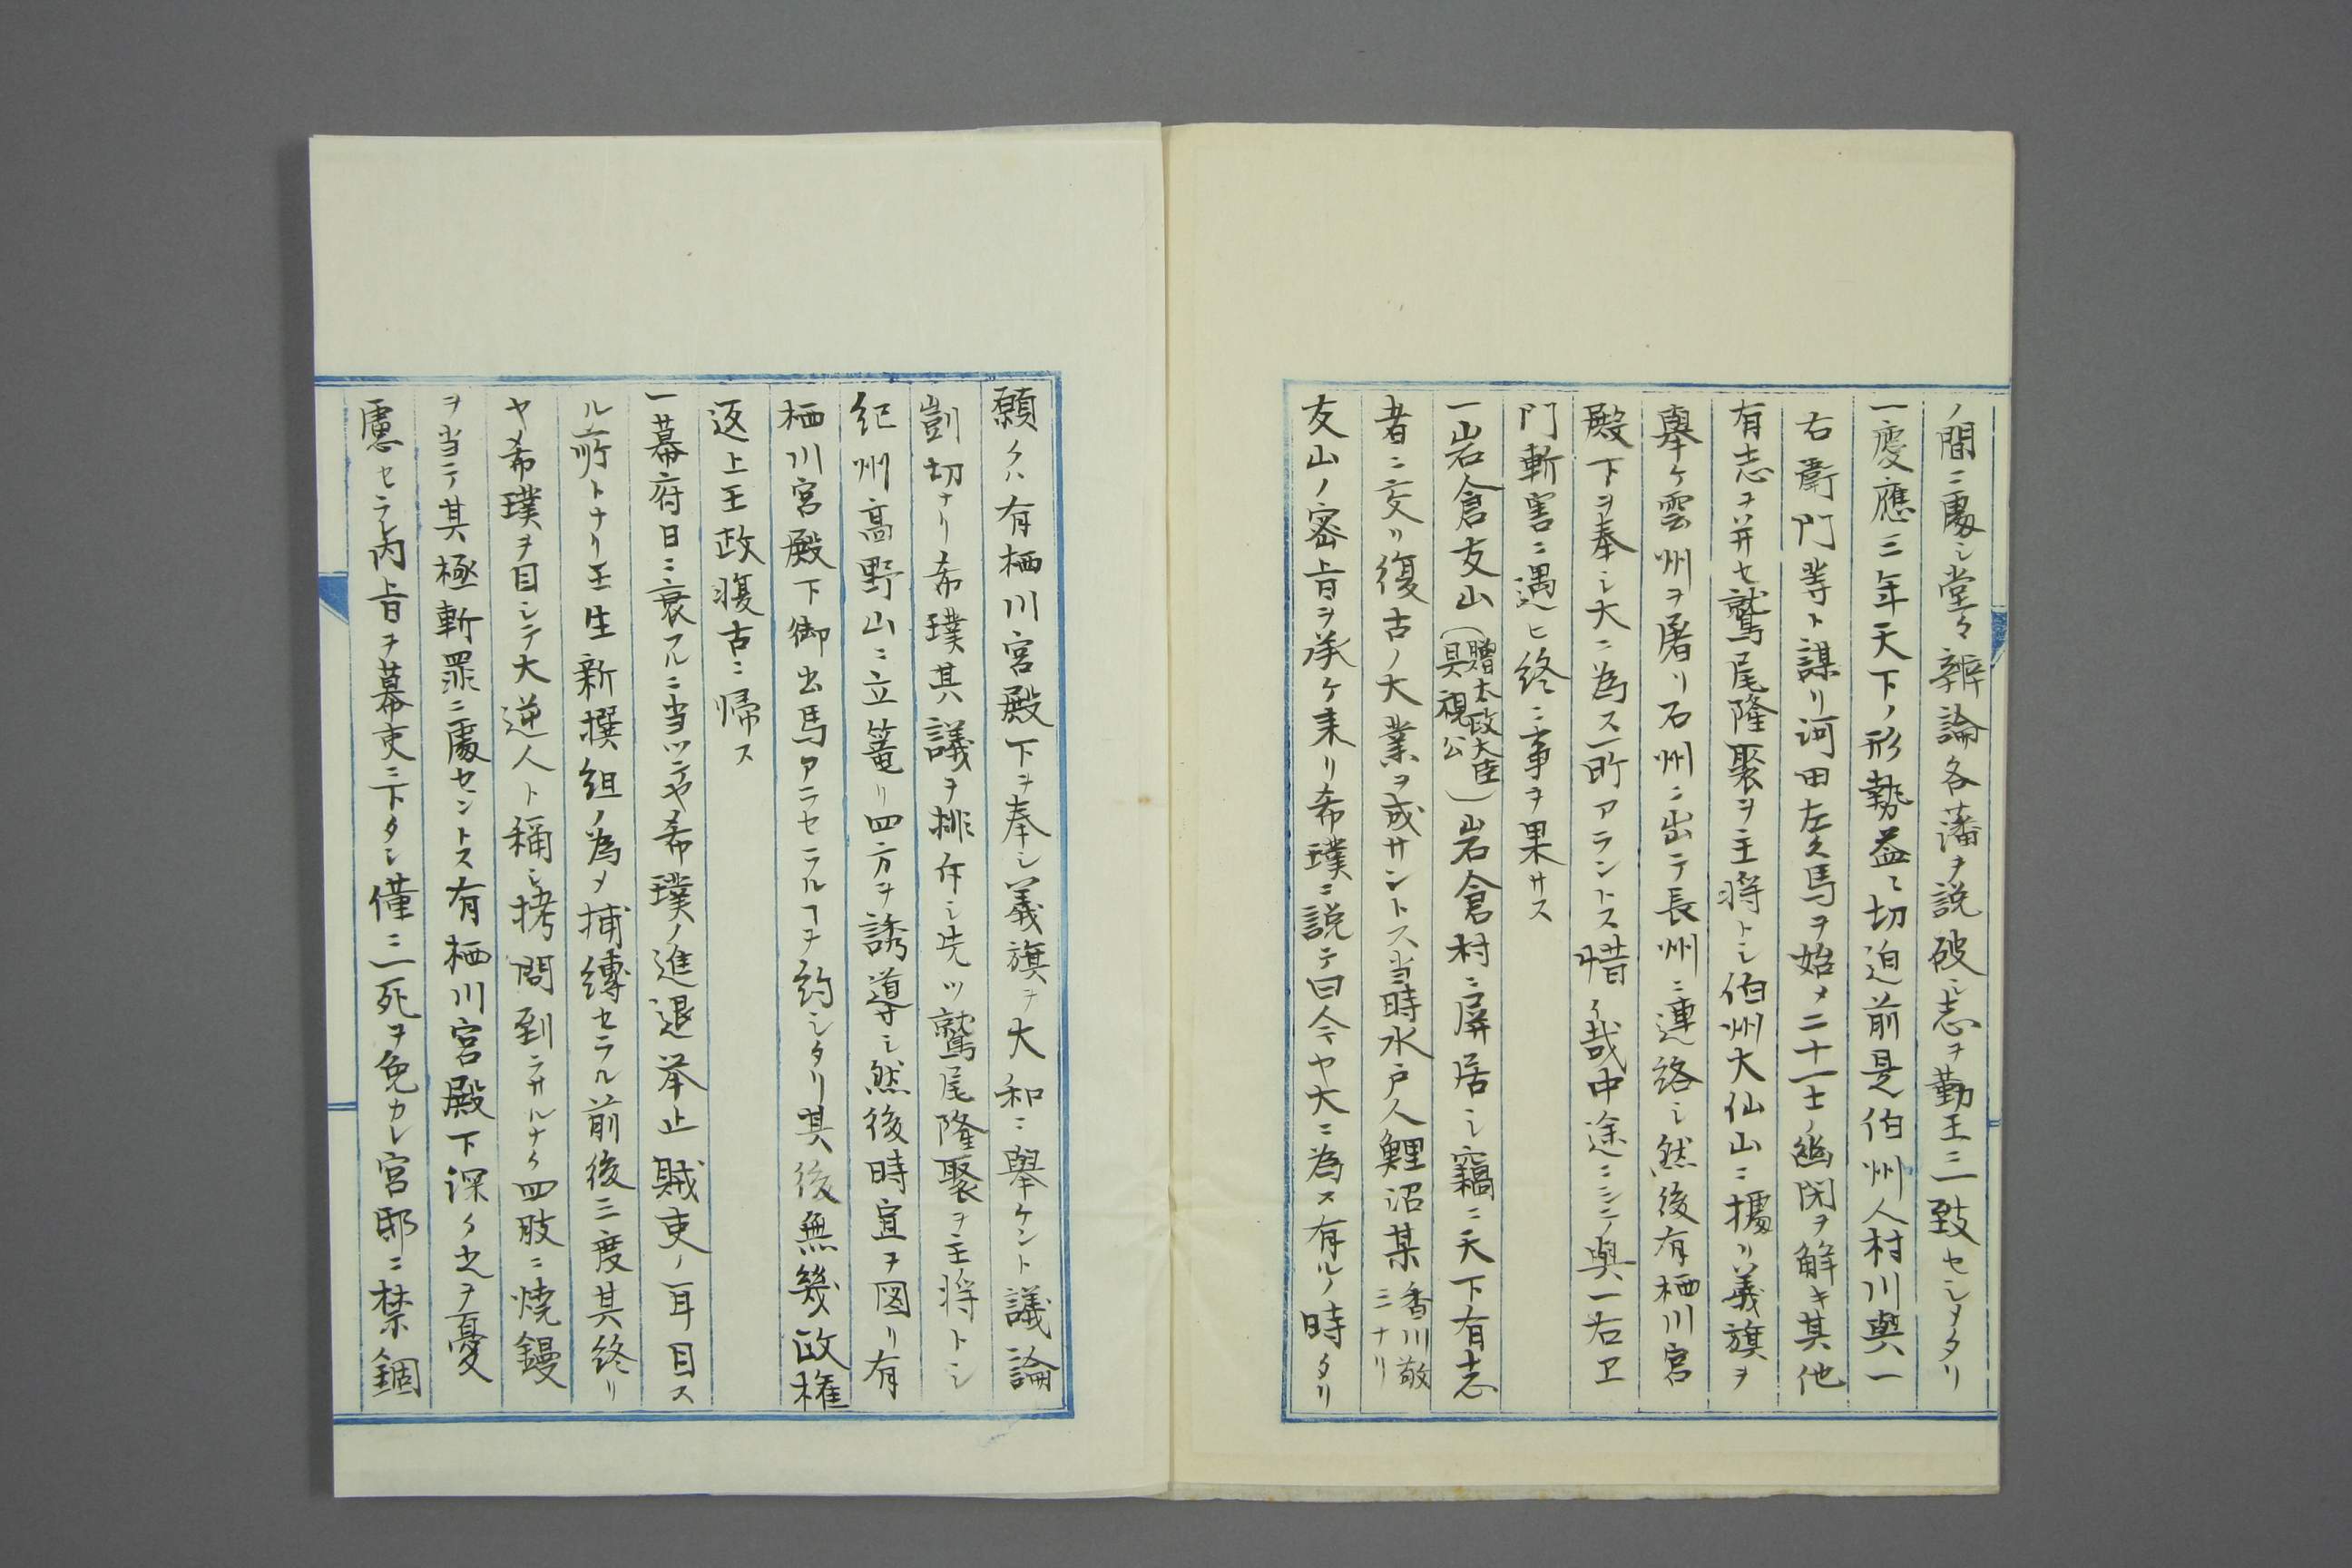 ノ間ニ處シ堂々辨論各藩ヲ説破シ志ヲ勤王ニ一致セシメタリ
一慶應三年天下ノ形勢益々切迫前是伯州人村川與一
右衛門等ト謀リ河田左久馬ヲ始メ二十一士ノ幽閉ヲ解キ其他
有志ヲ并セ鷲尾隆聚ヲ主将トシ伯州大仙山ニ據リ義旗ヲ
擧ケ雲州ヲ屠リ石州ニ出テ長州ニ連絡シ然後有栖川宮
殿下ヲ奉シ大ニ為ス所アラントス惜イ哉中途ニシテ與一右卫
門斬害ニ遇ヒ終ニ事ヲ果サス
一岩倉友山(贈太政大臣具視公)岩倉村ニ屏居シ竊ニ天下有志
者ニ交リ復古ノ大業ヲ成サントス当時水戸人鯉沼某香川敬三ナリ
友山ノ密旨ヲ承ケ来リ希璞ニ説テ曰今ヤ大ニ為ス有ルノ時タリ
願クハ有栖川宮殿下ヲ奉シ義旗ヲ大和ニ擧ケント議論
剴切ナリ希璞其議ヲ排斥シ先ツ鷲尾隆聚ヲ主将トシ
紀州高野山ニ立篭リ四方ヲ誘導シ然後時宜ヲ図リ有
栖川宮殿下御出馬アラセラルヿヲ約シタリ其後無幾政権
返上王政復古ニ帰ス
一幕府日ニ衰フルニ当ツテヤ希璞ノ進退举止賊吏ノ耳目ス
ル所トナリ壬生新撰組ノ為メ捕縛セラル前後三度其終リ
ヤ希璞ヲ目シテ大逆人ト稱シ拷問到ラサルナク四肢ニ焼鏝
ヲ当テ其極斬罪ニ處セントス有栖川宮殿下深ク之ヲ憂
慮セラレ内旨ヲ幕吏ニ下タシ僅ニ一死ヲ免カレ宮邸ニ禁錮